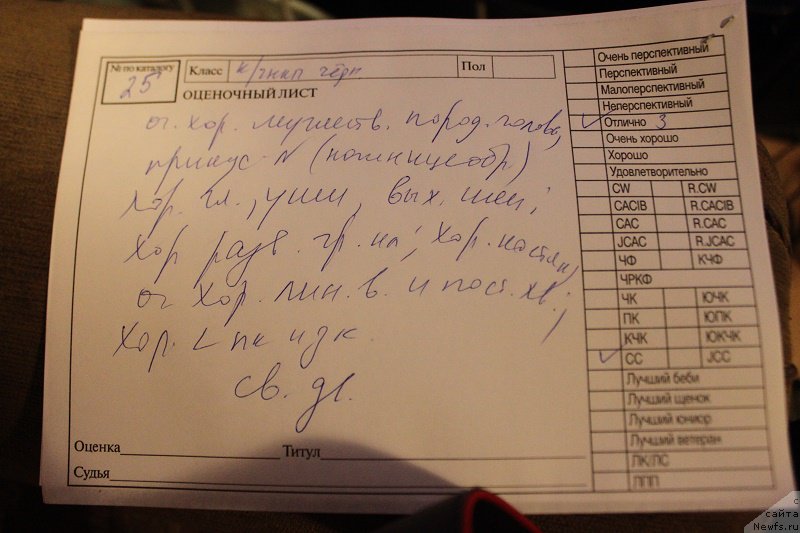 № по каталогу
25
Класс
Пол
ОЦЕНОЧНЫЙ ЛИСТ
оч. хор. мужеств. пород. голова,
прикус - N (ножницеобр)
хор. гл., уши, вых. шеи;
хор разв. гр. кл; хор.
оч хор. лин. в. и пост. хв.;
хор. < пк и зк.
св. дв.
Оценка
Титул
Судья
Очень перспективный
Перспективный
Малоперспективный
Неперспективный
Отлично 3
Очень хорошо
Хорошо
Удовлетворительно
CW R.CW
CACIB R.CACIB
CAC R.CAC
JCAC R.JCAC
ЧФ КЧФ
ЧРКФ
ЧК ЮЧК
ПК ЮПК
КЧК ЮКЧК
СС JCC
Лучший беби
Лучший щенок
Лучший юниор
Лучший ветеран
ЛК/ЛС
ЛПП
с
сайта
Newfs.ru